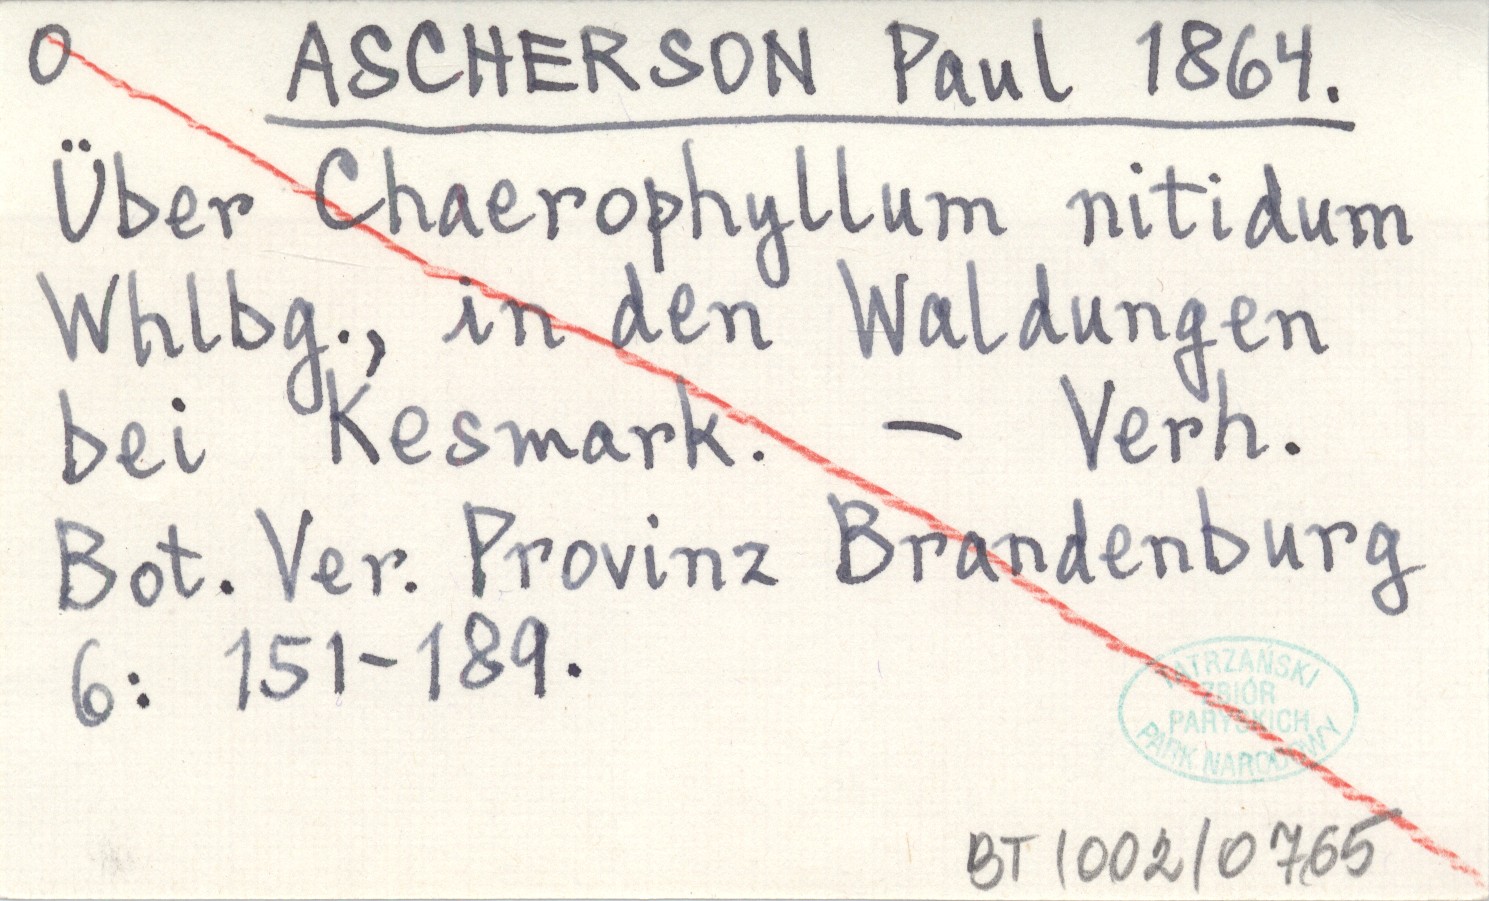 O ASCHERSON Paul 1864.
Über Chaerophyllum nitidum
Whlbg., in den Waldungen
bei Kesmark. — Verh.
Bot. Ver. Provinz Brandenburg
6: 151-189.
TATRZAŃSKI
ZBIÓR
PARYSKICH
PARK NARODOWY
BT/002/0765